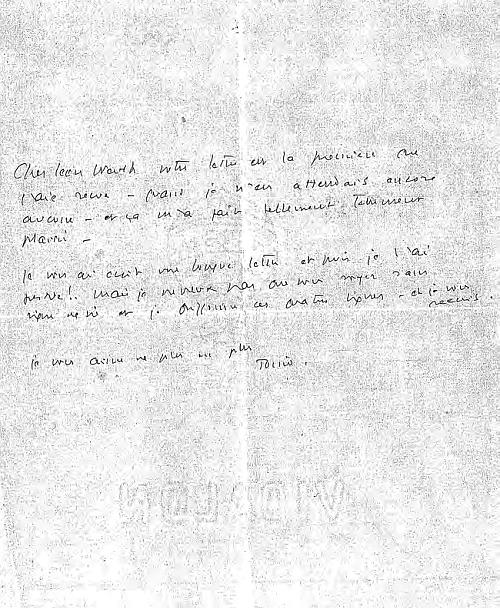 Cher Léon Werth votre lettre est la première que
j'aie reçue – mais je n'en attendais encore
aucune – et ça m'a fait tellement tellement
plaisir –
Je vous ai écrit une longue lettre et puis je l'ai
Mais je ne veux pas que vous soyez sans
et je ces quatre lignes – et je vous
Je vous aime de plus en plus